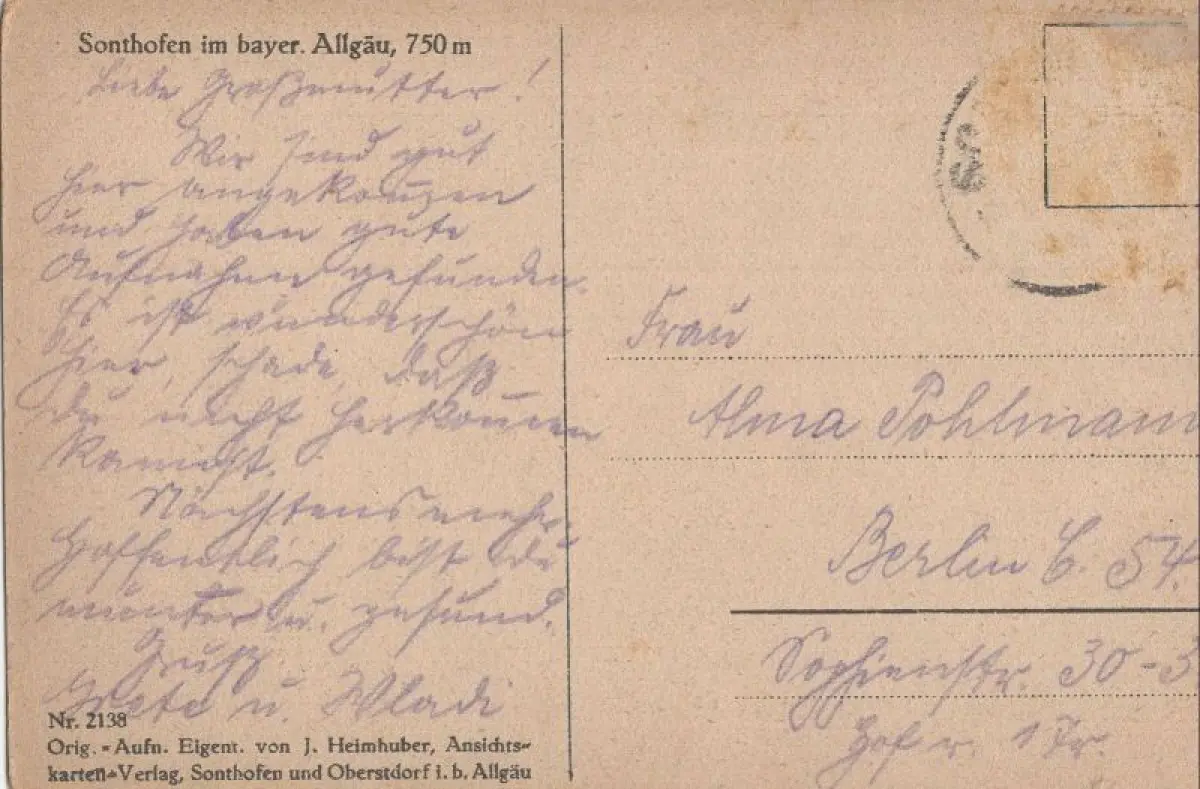 Sonthofen im bayer. Allgäu, 750 m
Liebe Großmutter!
Wir sind gut
hier angekommen
und haben gute
Aufnahmen gefunden.
Es ist wunderschön
hier, schade, daß
du nicht herkommen
kannst.
Nächstens mehr.
Hoffentlich bist du
munter u. gesund.
Gruß
Grete u. Wladi
Nr. 2138
Orig.-Aufn. Eigent. von J. Heimhuber, Ansichts-
karten-Verlag, Sonthofen und Oberstdorf i. b. Allgäu
Frau
Alma Pohlmann
Berlin C. 54.
Sophienstr. 30-3
Hof r. 1 Tr.